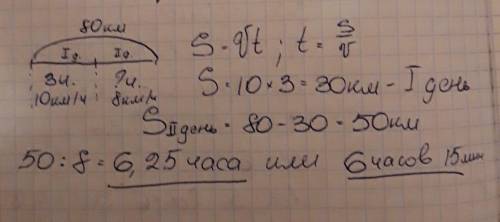 80км
I д. I д.
3ч. ?ч.
10км/ч 8км/ч
S = vt ; t = S/v
S = 10 × 3 = 30км - I день
S II день = 80 - 30 = 50км
50 : 8 = 6,25 часа или 6 часов 15 мин